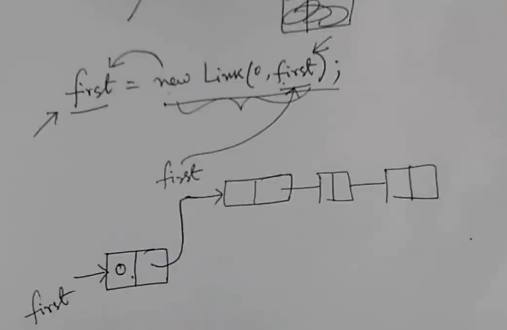 first = new Link(0, first);
first
0
first